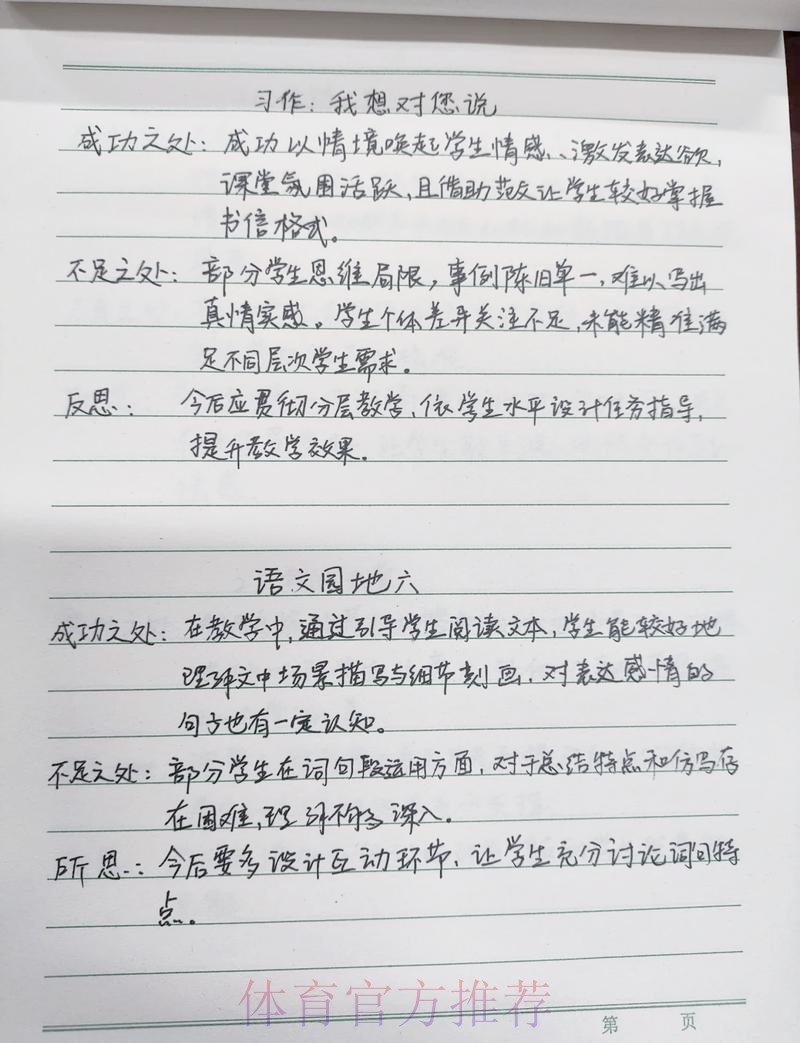 习作：我想对您说
成功之处：成功以情境唤起学生情感、激发表达欲，
课堂氛围活跃，且借助范文让学生较好掌握
书信格式。
不足之处：部分学生思维局限，事例陈旧单一，难以写出
真情实感。学生个体差异关注不足，未能精准满
足不同层次学生需求。
反思：今后应贯彻分层教学，依学生水平设计任务指导，
提升教学效果。
语文园地六
成功之处：在教学中，通过引导学生阅读文本，学生能较好地
理解文中场景描写与细节刻画，对表达感情的
句子也有一定认知。
不足之处：部分学生在词句段运用方面，对于总结特点和仿写存
在困难，理解不够深入。
所思：今后要多设计互动环节，让学生充分讨论词句特
点。
体育官方推荐
第 页